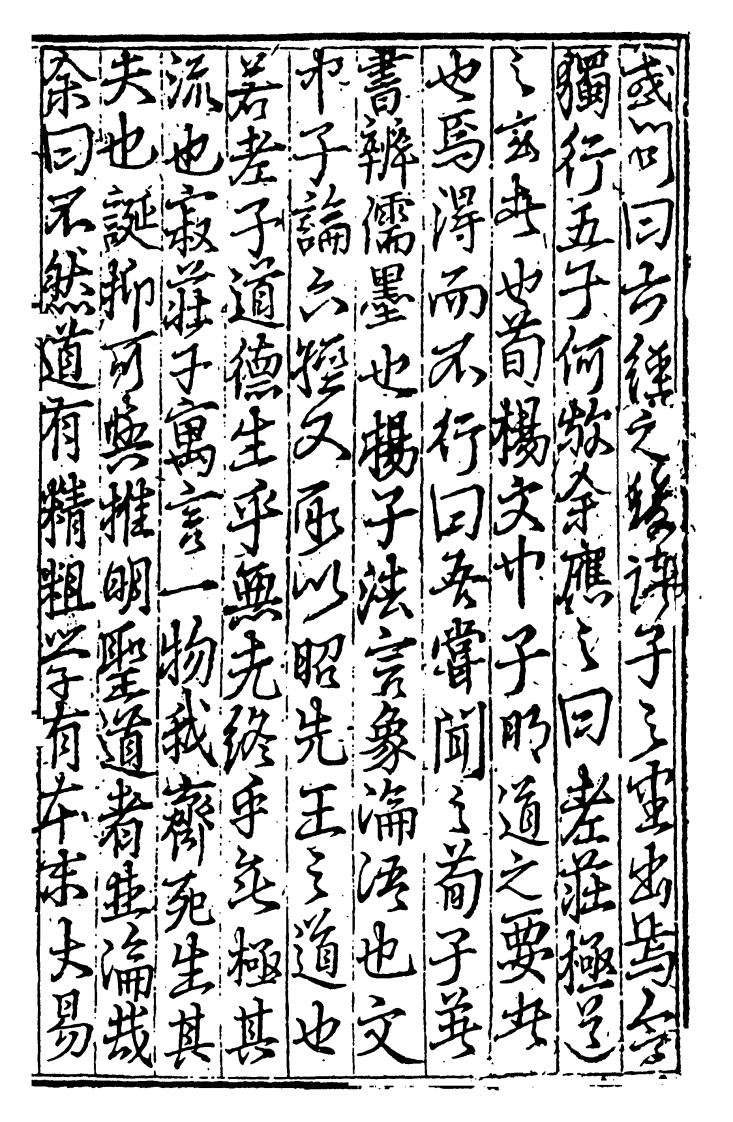 或問曰六經之後諸子之出焉今
獨行五子何故余應之曰老莊極道
之玄者也荀楊文中子明道之要者
也焉得而不行曰吾嘗聞之荀子著
書辨儒墨也楊子法言象論語也文
中子論六經又所以昭先王之道也
若老子道德生乎無先終乎無極其
流也寂莊子寓言一物我齊死生其
失也誕抑可與推明聖道者並論哉
余曰不然道有精粗學有本末大易